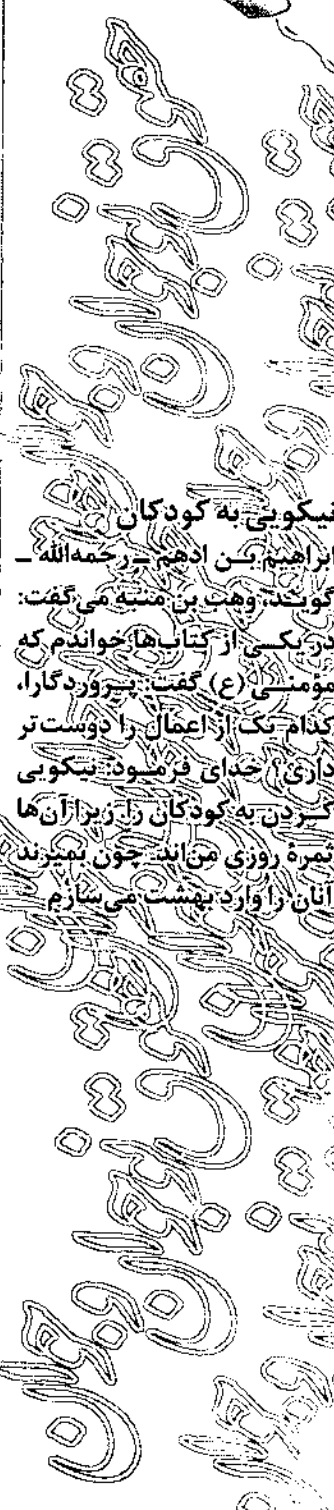 نیکویی به کودکان
ابراهیم بن ادهم ـ رحمه‌الله ـ
گویند: وهب بن منبّه می‌گفت:
در یکی از کتاب‌ها خواندم که
گفت: پروردگارا،
کدام یک از اعمال را دوست‌تر
داری؟ خدای فرمود: نیکویی
کردن به کودکان را، زیرا آن‌ها
ثمرهٔ روزی من‌اند. چون بمیرند
آنان را وارد بهشت می‌سازم.